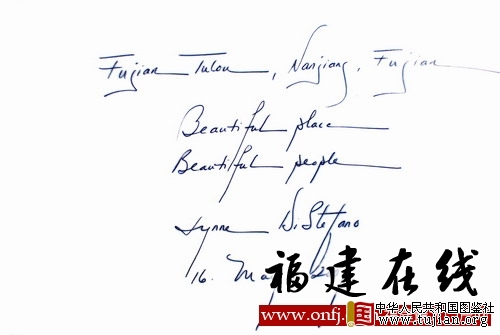 Fujian Tulou, Nanjing, Fujian
Beautiful place
Beautiful people
Lynne DiStefano
16. May
福建在线
中华人民共和国图鉴社
www.onfj.
www.tujian.org